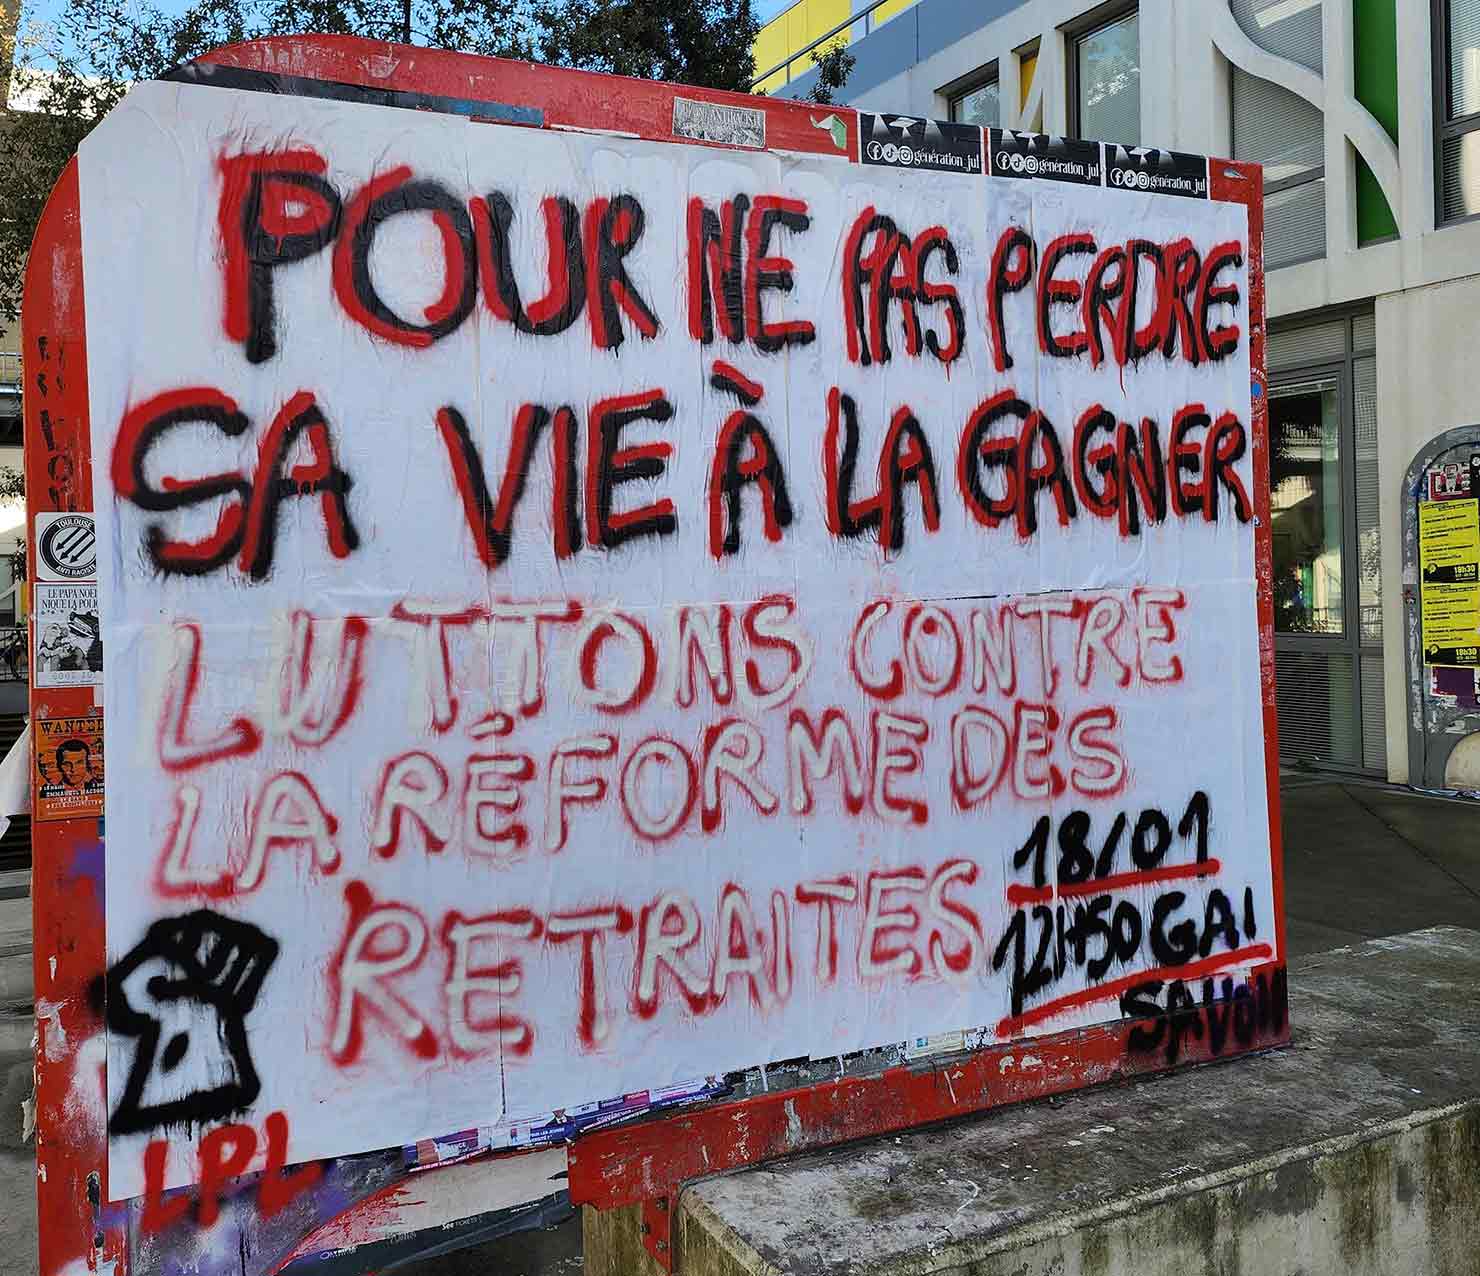 génération_jul
génération_jul
génération_jul
POUR NE PAS PERDRE
SA VIE À LA GAGNER
LUTTONS CONTRE
LA RÉFORME DES
RETRAITES
18/01
12H50 GAI
SAVOIR
LPL
TOULOUSE
ANTI RACISTE
LE PAPA NOEL
NIQUE LA POLICE
WANTED
18h30
18h30